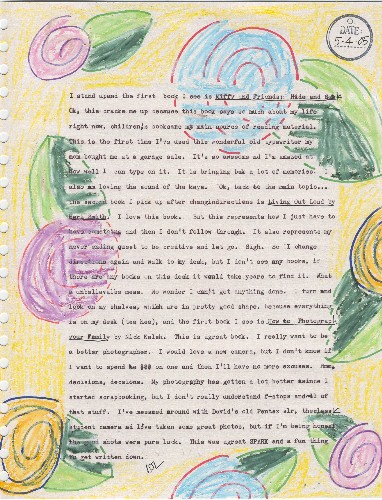 DATE:
5-4-05
I stand upand the first book I see is Miffy and Friends: Hide and Seek
Ok, this cracks me up because this book says so much about my life
right now, children's booksare my main source of reading material.
This is the first time I've used this wonderful old typewriter my
mom bought me at a garage sale. It's so awesome and I'm amazed at
how well I can type on it. It is bringing bak a lot of memories.
also am loving the sound of the keys. Ok, back to the main topic...
the second book I pick up after changindirections is Living Out Loud by
Keri Smith. I love this book. But this represents how I just have to
have something and then I don't follow through. It also represents my
never ending quest to be creative and let go. Sigh. So I change
directions again and walk to my desk, but I don't see any books, if
there are any books on this desk it would take years to find it. What
a unbelievable mess. No wonder I can't get anything done. I turn and
look on my shelves, which are in pretty good shape, because everything
is on my desk (tee hee), and the first book I see is How to Photograph
your Family by Nick Kelsh. This is agreat book. I really want to be
a better photographer. I would love a new camera, but I don't know if
I want to spend on one and then I'll have no more excuses. Hmm,
decisions, decisions. My photography has gotten a lot better since I
started scrapbooking, but I don't really understand f-stops and all of
that stuff. I've messed around with David's old Pentax slr,
student camera and I've taken some great photos, but if I'm being honest
the good shots were pure luck. This was agreat SPARK and a fun thing
to get written down.